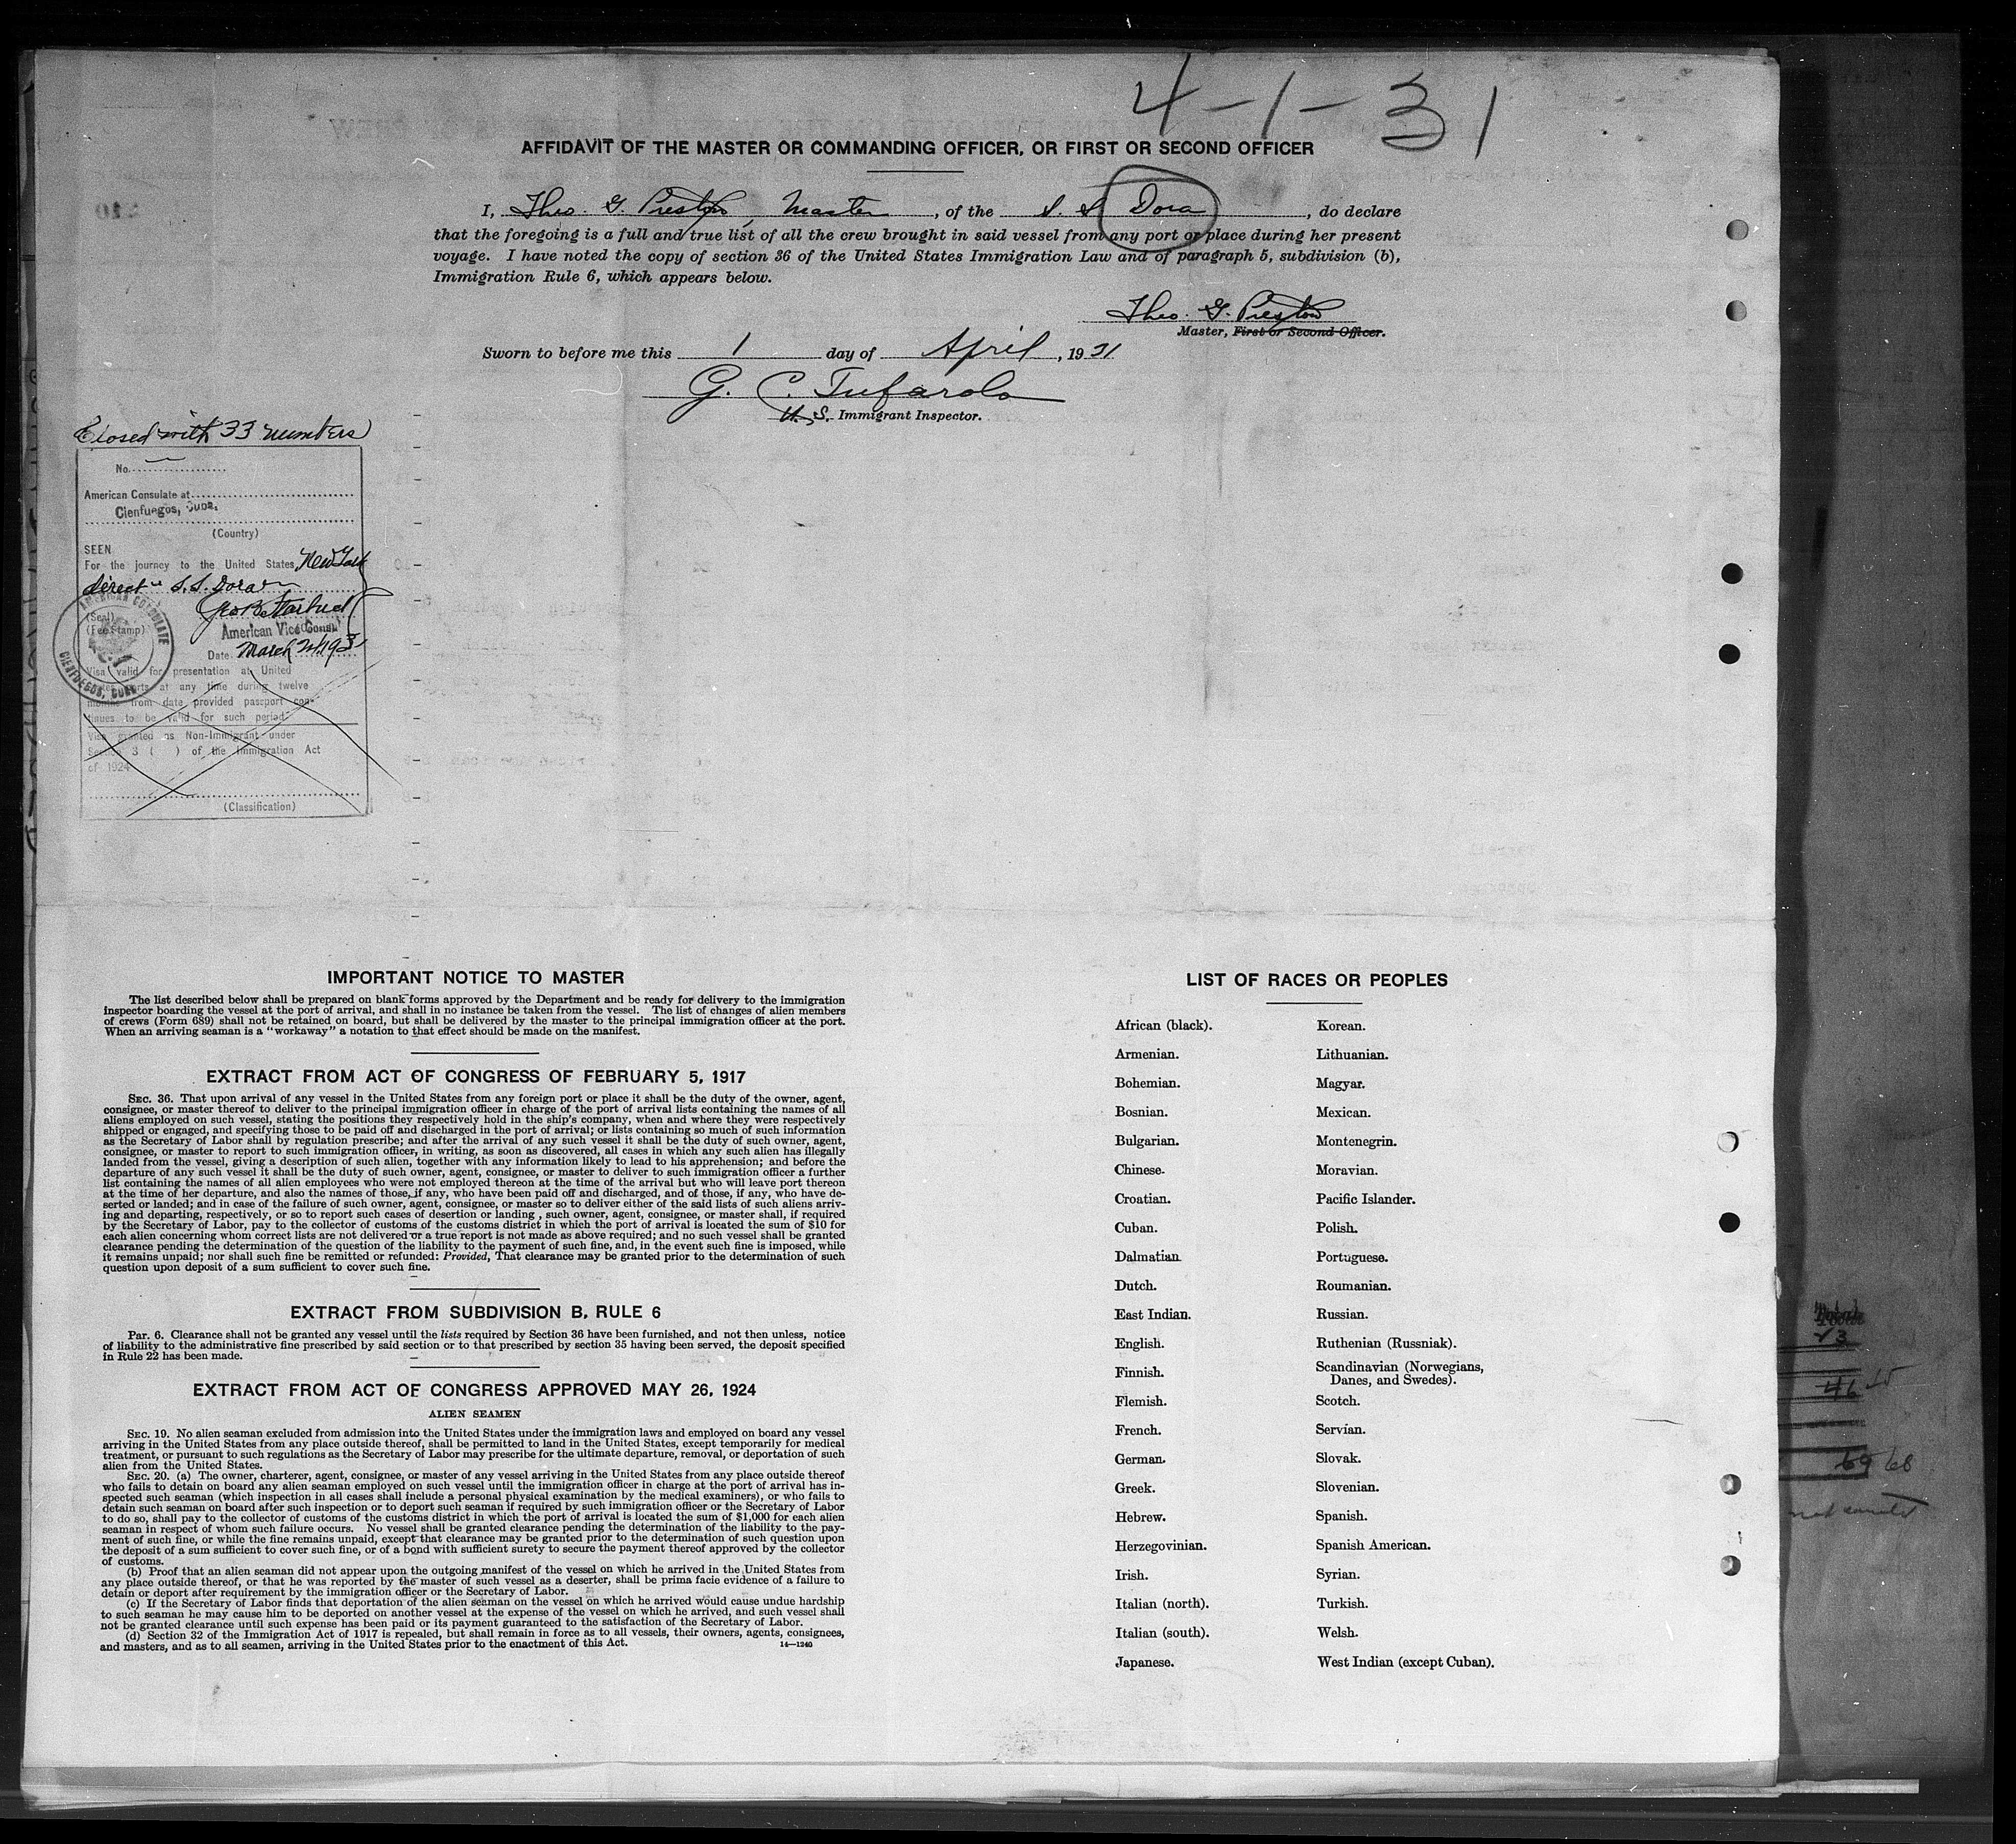 4-1-31
AFFIDAVIT OF THE MASTER OR COMMANDING OFFICER, OR FIRST OR SECOND OFFICER
I, Theo. G. Preston, Master, of the S. S. Dora, do declare
that the foregoing is a full and true list of all the crew brought in said vessel from any port or place during her present
voyage. I have noted the copy of section 36 of the United States Immigration Law and of paragraph 5, subdivision (b),
Immigration Rule 6, which appears below.
Theo. G. Preston
Master, First or Second Officer.
Sworn to before me this 1 day of April, 1931
G. C. Tufarolo
U. S. Immigrant Inspector.
Closed with 33 numbers
No.
American Consulate at
Cienfuegos, Cuba.
(Country)
SEEN
For the journey to the United States, New York
direct S.S. Dora
(Seal)
(Fee Stamp)
American Vice Consul
Date March 1931
AMERICAN CONSULATE
CIENFUEGOS, CUBA
Visa valid for presentation at United
States ports at any time during twelve
months from date provided passport con-
tinues to be valid for such period
Visa granted as Non-Immigrant under
Section 3 ( ) of the Immigration Act
of 1924
(Classification)
IMPORTANT NOTICE TO MASTER
The list described below shall be prepared on blank forms approved by the Department and be ready for delivery to the immigration
inspector boarding the vessel at the port of arrival, and shall in no instance be taken from the vessel. The list of changes of alien members
of crews (Form 689) shall not be retained on board, but shall be delivered by the master to the principal immigration officer at the port.
When an arriving seaman is a "workaway" a notation to that effect should be made on the manifest.
EXTRACT FROM ACT OF CONGRESS OF FEBRUARY 5, 1917
SEC. 36. That upon arrival of any vessel in the United States from any foreign port or place it shall be the duty of the owner, agent,
consignee, or master thereof to deliver to the principal immigration officer in charge of the port of arrival lists containing the names of all
aliens employed on such vessel, stating the positions they respectively hold in the ship's company, when and where they were respectively
shipped or engaged, and specifying those to be paid off and discharged in the port of arrival; or lists containing so much of such information
as the Secretary of Labor shall by regulation prescribe; and after the arrival of any such vessel it shall be the duty of such owner, agent,
consignee, or master to report to such immigration officer, in writing, as soon as discovered, all cases in which any such alien has illegally
landed from the vessel, giving a description of such alien, together with any information likely to lead to his apprehension; and before the
departure of any such vessel it shall be the duty of such owner, agent, consignee, or master to deliver to such immigration officer a further
list containing the names of all alien employees who were not employed thereon at the time of the arrival but who will leave port thereon
at the time of her departure, and also the names of those, if any, who have been paid off and discharged, and of those, if any, who have de-
serted or landed; and in case of the failure of such owner, agent, consignee, or master so to deliver either of the said lists of such aliens arriv-
ing and departing, respectively, or so to report such cases of desertion or landing, such owner, agent, consignee, or master shall, if required
by the Secretary of Labor, pay to the collector of customs of the customs district in which the port of arrival is located the sum of $10 for
each alien concerning whom correct lists are not delivered or a true report is not made as above required; and no such vessel shall be granted
clearance pending the determination of the question of the liability to the payment of such fine, and, in the event such fine is imposed, while
it remains unpaid; nor shall such fine be remitted or refunded: Provided, That clearance may be granted prior to the determination of such
question upon deposit of a sum sufficient to cover such fine.
EXTRACT FROM SUBDIVISION B, RULE 6
Par. 6. Clearance shall not be granted any vessel until the lists required by Section 36 have been furnished, and not then unless, notice
of liability to the administrative fine prescribed by said section or to that prescribed by section 35 having been served, the deposit specified
in Rule 22 has been made.
EXTRACT FROM ACT OF CONGRESS APPROVED MAY 26, 1924
ALIEN SEAMEN
SEC. 19. No alien seaman excluded from admission into the United States under the immigration laws and employed on board any vessel
arriving in the United States from any place outside thereof, shall be permitted to land in the United States, except temporarily for medical
treatment, or pursuant to such regulations as the Secretary of Labor may prescribe for the ultimate departure, removal, or deportation of such
alien from the United States.
SEC. 20. (a) The owner, charterer, agent, consignee, or master of any vessel arriving in the United States from any place outside thereof
who fails to detain on board any alien seaman employed on such vessel until the immigration officer in charge at the port of arrival has in-
spected such seaman (which inspection in all cases shall include a personal physical examination by the medical examiners), or who fails to
detain such seaman on board after such inspection or to deport such seaman if required by such immigration officer or the Secretary of Labor
to do so, shall pay to the collector of customs of the customs district in which the port of arrival is located the sum of $1,000 for each alien
seaman in respect of whom such failure occurs. No vessel shall be granted clearance pending the determination of the liability to the pay-
ment of such fine, or while the fine remains unpaid, except that clearance may be granted prior to the determination of such question upon
the deposit of a sum sufficient to cover such fine, or of a bond with sufficient surety to secure the payment thereof approved by the collector
of customs.
(b) Proof that an alien seaman did not appear upon the outgoing manifest of the vessel on which he arrived in the United States from
any place outside thereof, or that he was reported by the master of such vessel as a deserter, shall be prima facie evidence of a failure to
detain or deport after requirement by the immigration officer or the Secretary of Labor.
(c) If the Secretary of Labor finds that deportation of the alien seaman on the vessel on which he arrived would cause undue hardship
to such seaman he may cause him to be deported on another vessel at the expense of the vessel on which he arrived, and such vessel shall
not be granted clearance until such expense has been paid or its payment guaranteed to the satisfaction of the Secretary of Labor.
(d) Section 32 of the Immigration Act of 1917 is repealed, but shall remain in force as to all vessels, their owners, agents, consignees,
and masters, and as to all seamen, arriving in the United States prior to the enactment of this Act.
14—1240
LIST OF RACES OR PEOPLES
African (black).
Armenian.
Bohemian.
Bosnian.
Bulgarian.
Chinese.
Croatian.
Cuban.
Dalmatian.
Dutch.
East Indian.
English.
Finnish.
Flemish.
French.
German.
Greek.
Hebrew.
Herzegovinian.
Irish.
Italian (north).
Italian (south).
Japanese.
Korean.
Lithuanian.
Magyar.
Mexican.
Montenegrin.
Moravian.
Pacific Islander.
Polish.
Portuguese.
Roumanian.
Russian.
Ruthenian (Russniak).
Scandinavian (Norwegians,
Danes, and Swedes).
Scotch.
Servian.
Slovak.
Slovenian.
Spanish.
Spanish American.
Syrian.
Turkish.
Welsh.
West Indian (except Cuban).
46
68